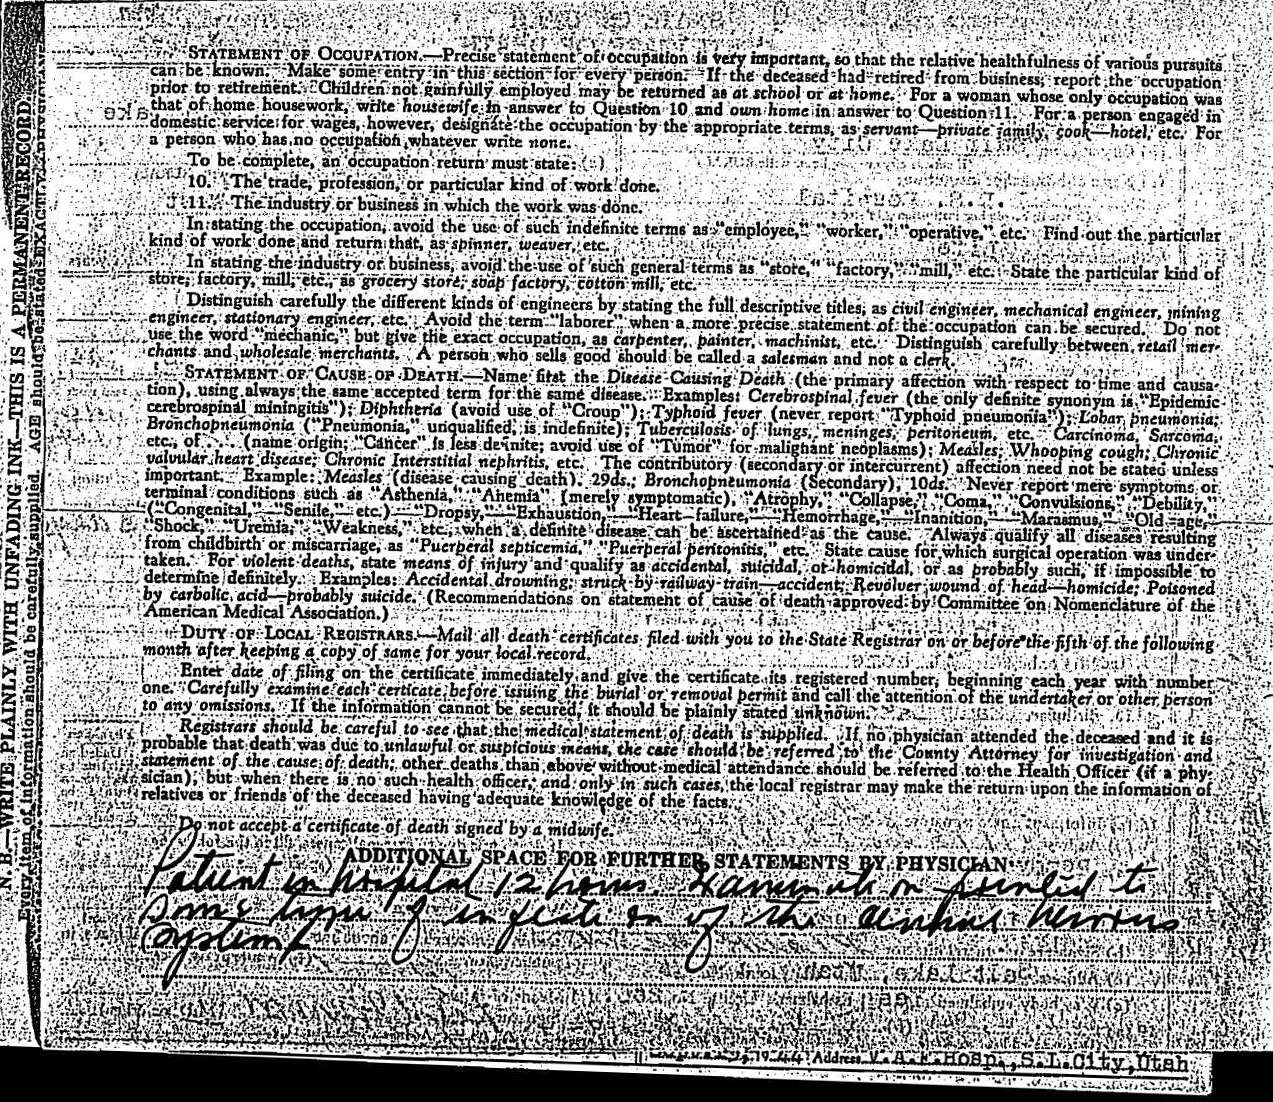 STATEMENT OF OCCUPATION.—Precise statement of occupation is very important, so that the relative healthfulness of various pursuits
can be known. Make some entry in this section for every person. If the deceased had retired from business, report the occupation
prior to retirement. Children not gainfully employed may be returned as at school or at home. For a woman whose only occupation was
that of home housework, write housewife in answer to Question 10 and own home in answer to Question 11. For a person engaged in
domestic service for wages, however, designate the occupation by the appropriate terms, as servant—private family, cook—hotel, etc. For
a person who has no occupation whatever write none.
To be complete, an occupation return must state:
10. The trade, profession, or particular kind of work done.
11. The industry or business in which the work was done.
In stating the occupation, avoid the use of such indefinite terms as "employee," "worker," "operative," etc. Find out the particular
kind of work done and return that, as spinner, weaver, etc.
In stating the industry or business, avoid the use of such general terms as "store," "factory," "mill," etc. State the particular kind of
store, factory, mill, etc., as grocery store, soap factory, cotton mill, etc.
Distinguish carefully the different kinds of engineers by stating the full descriptive titles, as civil engineer, mechanical engineer, mining
engineer, stationary engineer, etc. Avoid the term "laborer" when a more precise statement of the occupation can be secured. Do not
use the word "mechanic," but give the exact occupation, as carpenter, painter, machinist, etc. Distinguish carefully between retail mer-
chants and wholesale merchants. A person who sells good should be called a salesman and not a clerk.
STATEMENT OF CAUSE OF DEATH.—Name first the Disease Causing Death (the primary affection with respect to time and causa-
tion), using always the same accepted term for the same disease. Examples: Cerebrospinal fever (the only definite synonym is "Epidemic
cerebrospinal miningitis"); Diphtheria (avoid use of "Croup"); Typhoid fever (never report "Typhoid pneumonia"); Lobar pneumonia;
Bronchopneumonia ("Pneumonia," unqualified, is indefinite); Tuberculosis of lungs, meninges, peritoneum, etc. Carcinoma, Sarcoma,
etc., of.... (name origin; "Cancer" is less definite; avoid use of "Tumor" for malignant neoplasms); Measles; Whooping cough; Chronic
valvular heart disease; Chronic Interstitial nephritis, etc. The contributory (secondary or intercurrent) affection need not be stated unless
important. Example: Measles (disease causing death). 29ds.; Bronchopneumonia (Secondary), 10ds. Never report mere symptoms or
terminal conditions such as "Asthenia," "Anemia" (merely symptomatic), "Atrophy," "Collapse," "Coma," "Convulsions," "Debility,"
("Congenital," "Senile," etc.) "Dropsy," "Exhaustion," "Heart failure," "Hemorrhage," "Inanition," "Marasmus," "Old age,"
"Shock," "Uremia," "Weakness," etc., when a definite disease can be ascertained as the cause. Always qualify all diseases resulting
from childbirth or miscarriage, as "Puerperal septicemia," "Puerperal peritonitis," etc. State cause for which surgical operation was under-
taken. For violent deaths, state means of injury and qualify as accidental, suicidal, or homicidal, or as probably such, if impossible to
determine definitely. Examples: Accidental drowning; struck by railway train—accident; Revolver wound of head—homicide; Poisoned
by carbolic acid—probably suicide. (Recommendations on statement of cause of death approved by Committee on Nomenclature of the
American Medical Association.)
DUTY OF LOCAL REGISTRARS.—Mail all death certificates filed with you to the State Registrar on or before the fifth of the following
month after keeping a copy of same for your local record.
Enter date of filing on the certificate immediately and give the certificate its registered number, beginning each year with number
one. Carefully examine each certicate before issuing the burial or removal permit and call the attention of the undertaker or other person
to any omissions. If the information cannot be secured, it should be plainly stated unknown.
Registrars should be careful to see that the medical statement of death is supplied. If no physician attended the deceased and it is
probable that death was due to unlawful or suspicious means, the case should be referred to the County Attorney for investigation and
statement of the cause of death; other deaths than above without medical attendance should be referred to the Health Officer (if a phy-
sician), but when there is no such health officer, and only in such cases, the local registrar may make the return upon the information of
relatives or friends of the deceased having adequate knowledge of the facts.
Do not accept a certificate of death signed by a midwife.
ADDITIONAL SPACE FOR FURTHER STATEMENTS BY PHYSICIAN
Patient in hospital 12 hours. Examination pointed to
some type of infection of the central nervous
system
Address V.A.F. Hosp., S.L. City, Utah
N. B.—WRITE PLAINLY WITH UNFADING INK—THIS IS A PERMANENT RECORD
Every item of information should be carefully supplied. AGE should be stated EXACTLY.